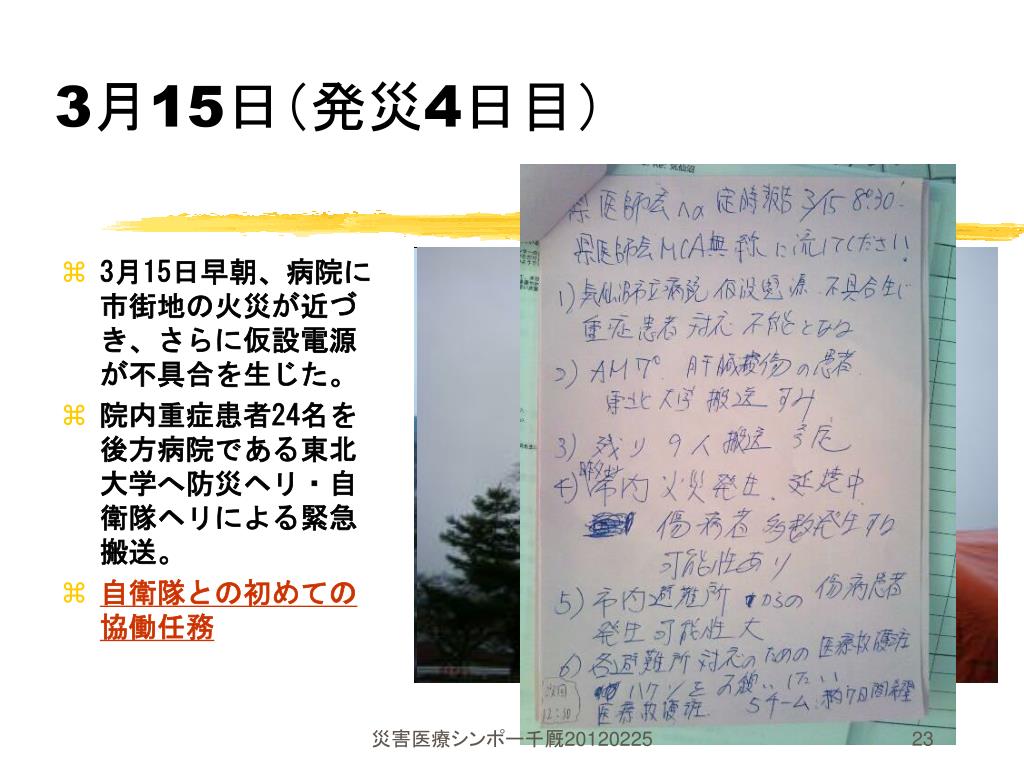 3月15日（発災4日目）
3月15日早朝、病院に
市街地の火災が近づ
き、さらに仮設電源
が不具合を生じた。
院内重症患者24名を
後方病院である東北
大学へ防災ヘリ・自
衛隊ヘリによる緊急
搬送。
自衛隊との初めての
協働任務
気仙沼
県医師会への定時報告 3/15 8:30!
県医師会MCA無線に流してください!
1) 気仙沼市立病院 仮設電源 不具合生じ
重症患者対応不能となる
2) AM7° 肝臓損傷の患者
東北大学搬送すみ
3) 残り 9人搬送予定
4) 市内火災発生、延焼中
傷病者多数発生する
可能性あり
5) 市内避難所からの傷病患者
発生可能性大
6) 各避難所対応のための医療救護班
ハケンをお願いしたい
医療救護班 5チーム:約7日間希望
次回
12:30
災害医療シンポー千厩20120225
23